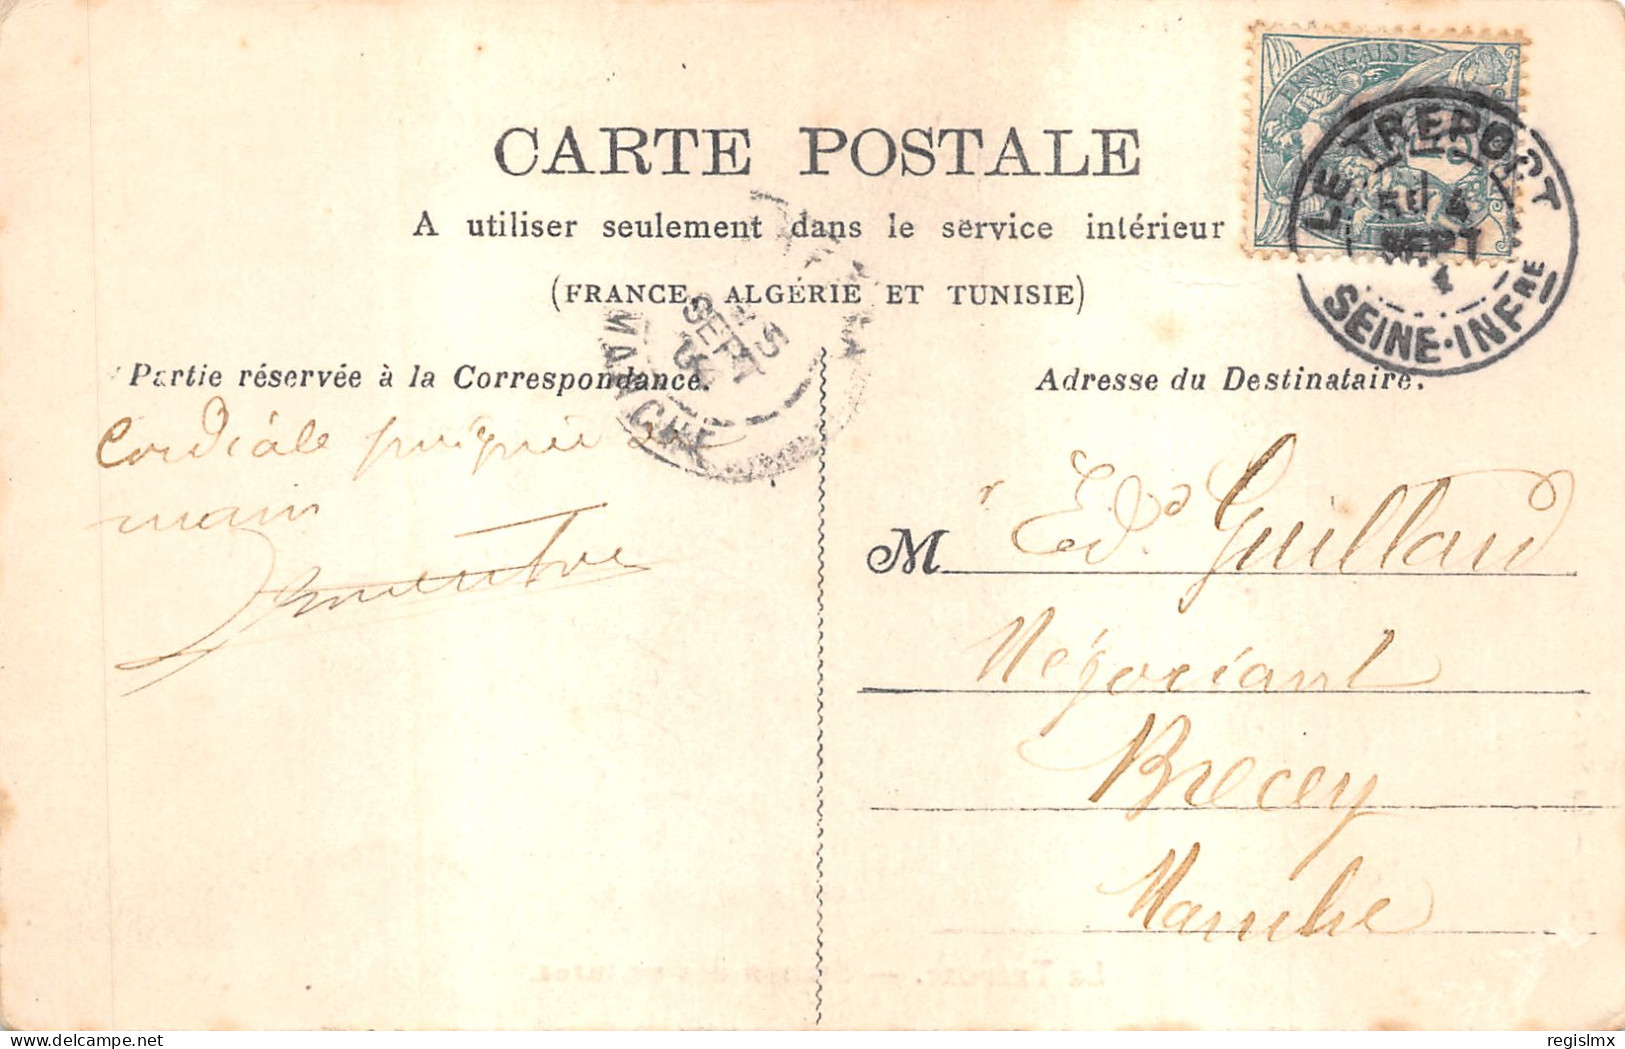 CARTE POSTALE
A utiliser seulement dans le service intérieur
(FRANCE, ALGÉRIE ET TUNISIE)
FRANÇAISE
LE TREPORT
4
SEPT
4
SEINE-INFRE
5
SEPT
MANCHE
Partie réservée à la Correspondance.
Cordiale poignée de
main
Adresse du Destinataire.
M r Ed. Guillard
Négociant
Brecey
Manche
LE TREPORT. —
delcampe.net
regislmx